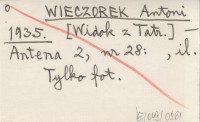 o
WIECZOREK Antoni
1935. [Widok z Tatr.] —
Antena 2, nr 28: , il.
Tylko fot.